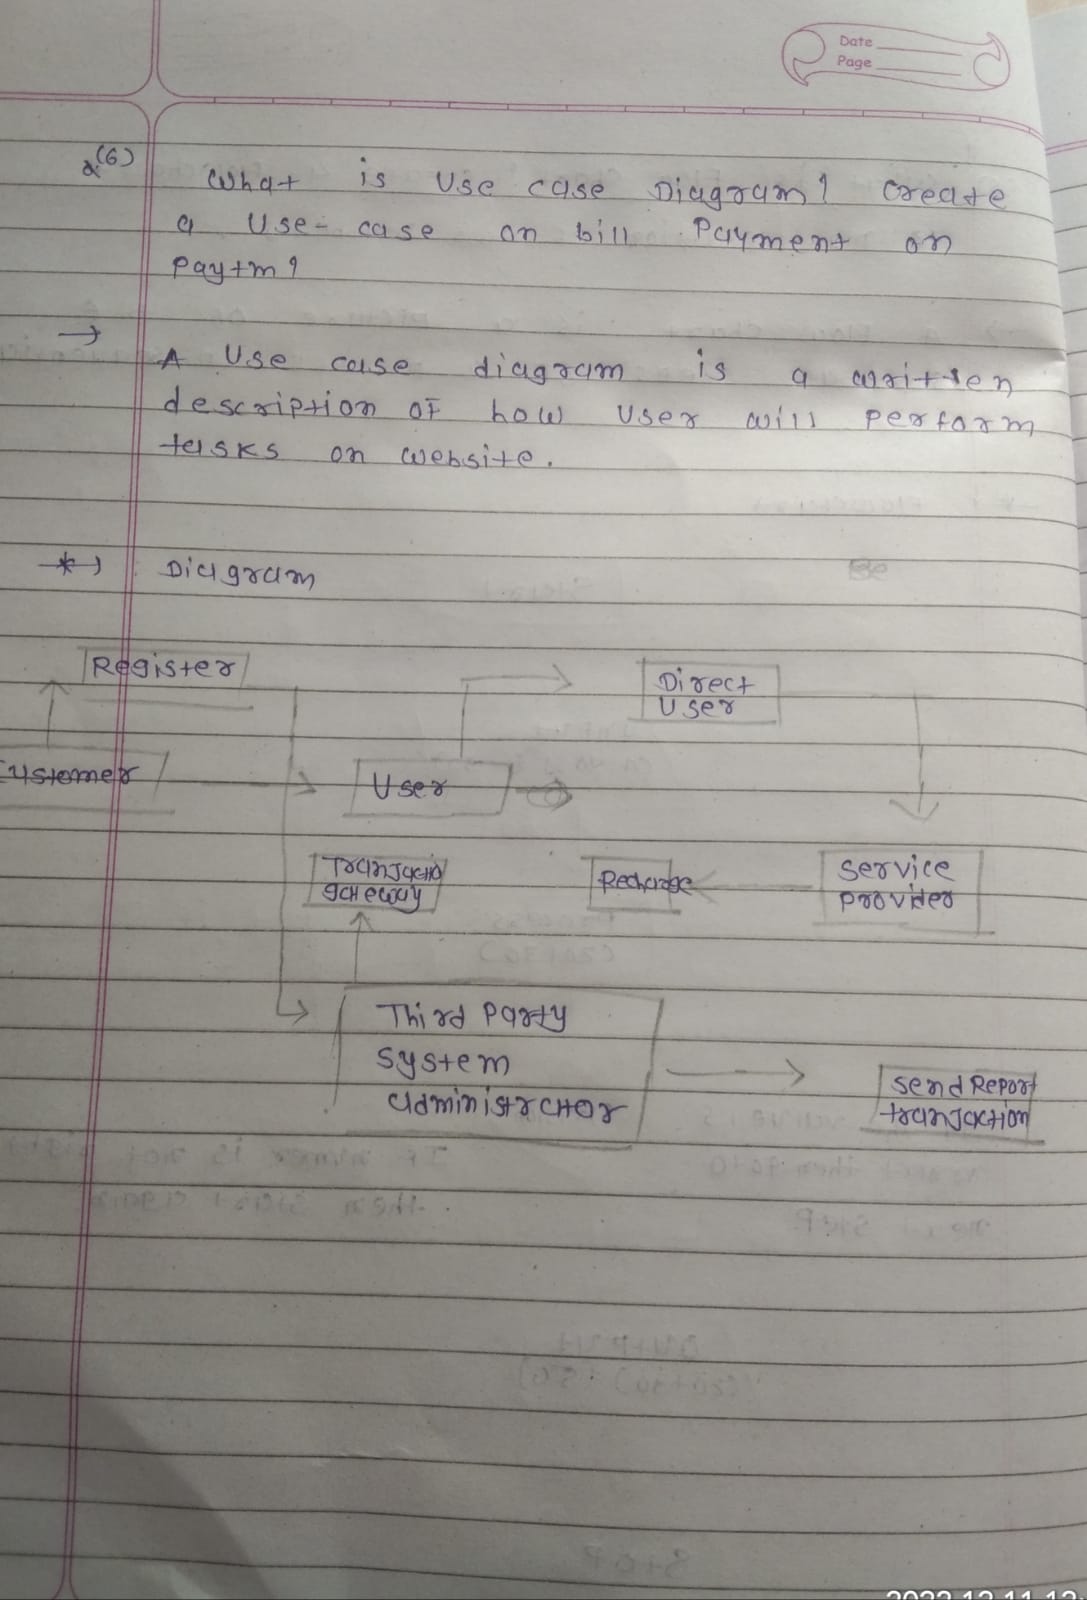 Date
Page
Q(6)
What is Use case Diagram? Create
a Use-case on bill Payment on
Paytm?
→
A Use case diagram is a written
description of how user will perform
tasks on website.
Diagram
Register
Direct
User
Customer
User
Transactio
gateway
Recharge
service
provider
Third Party
system
administrator
send Report
transaction